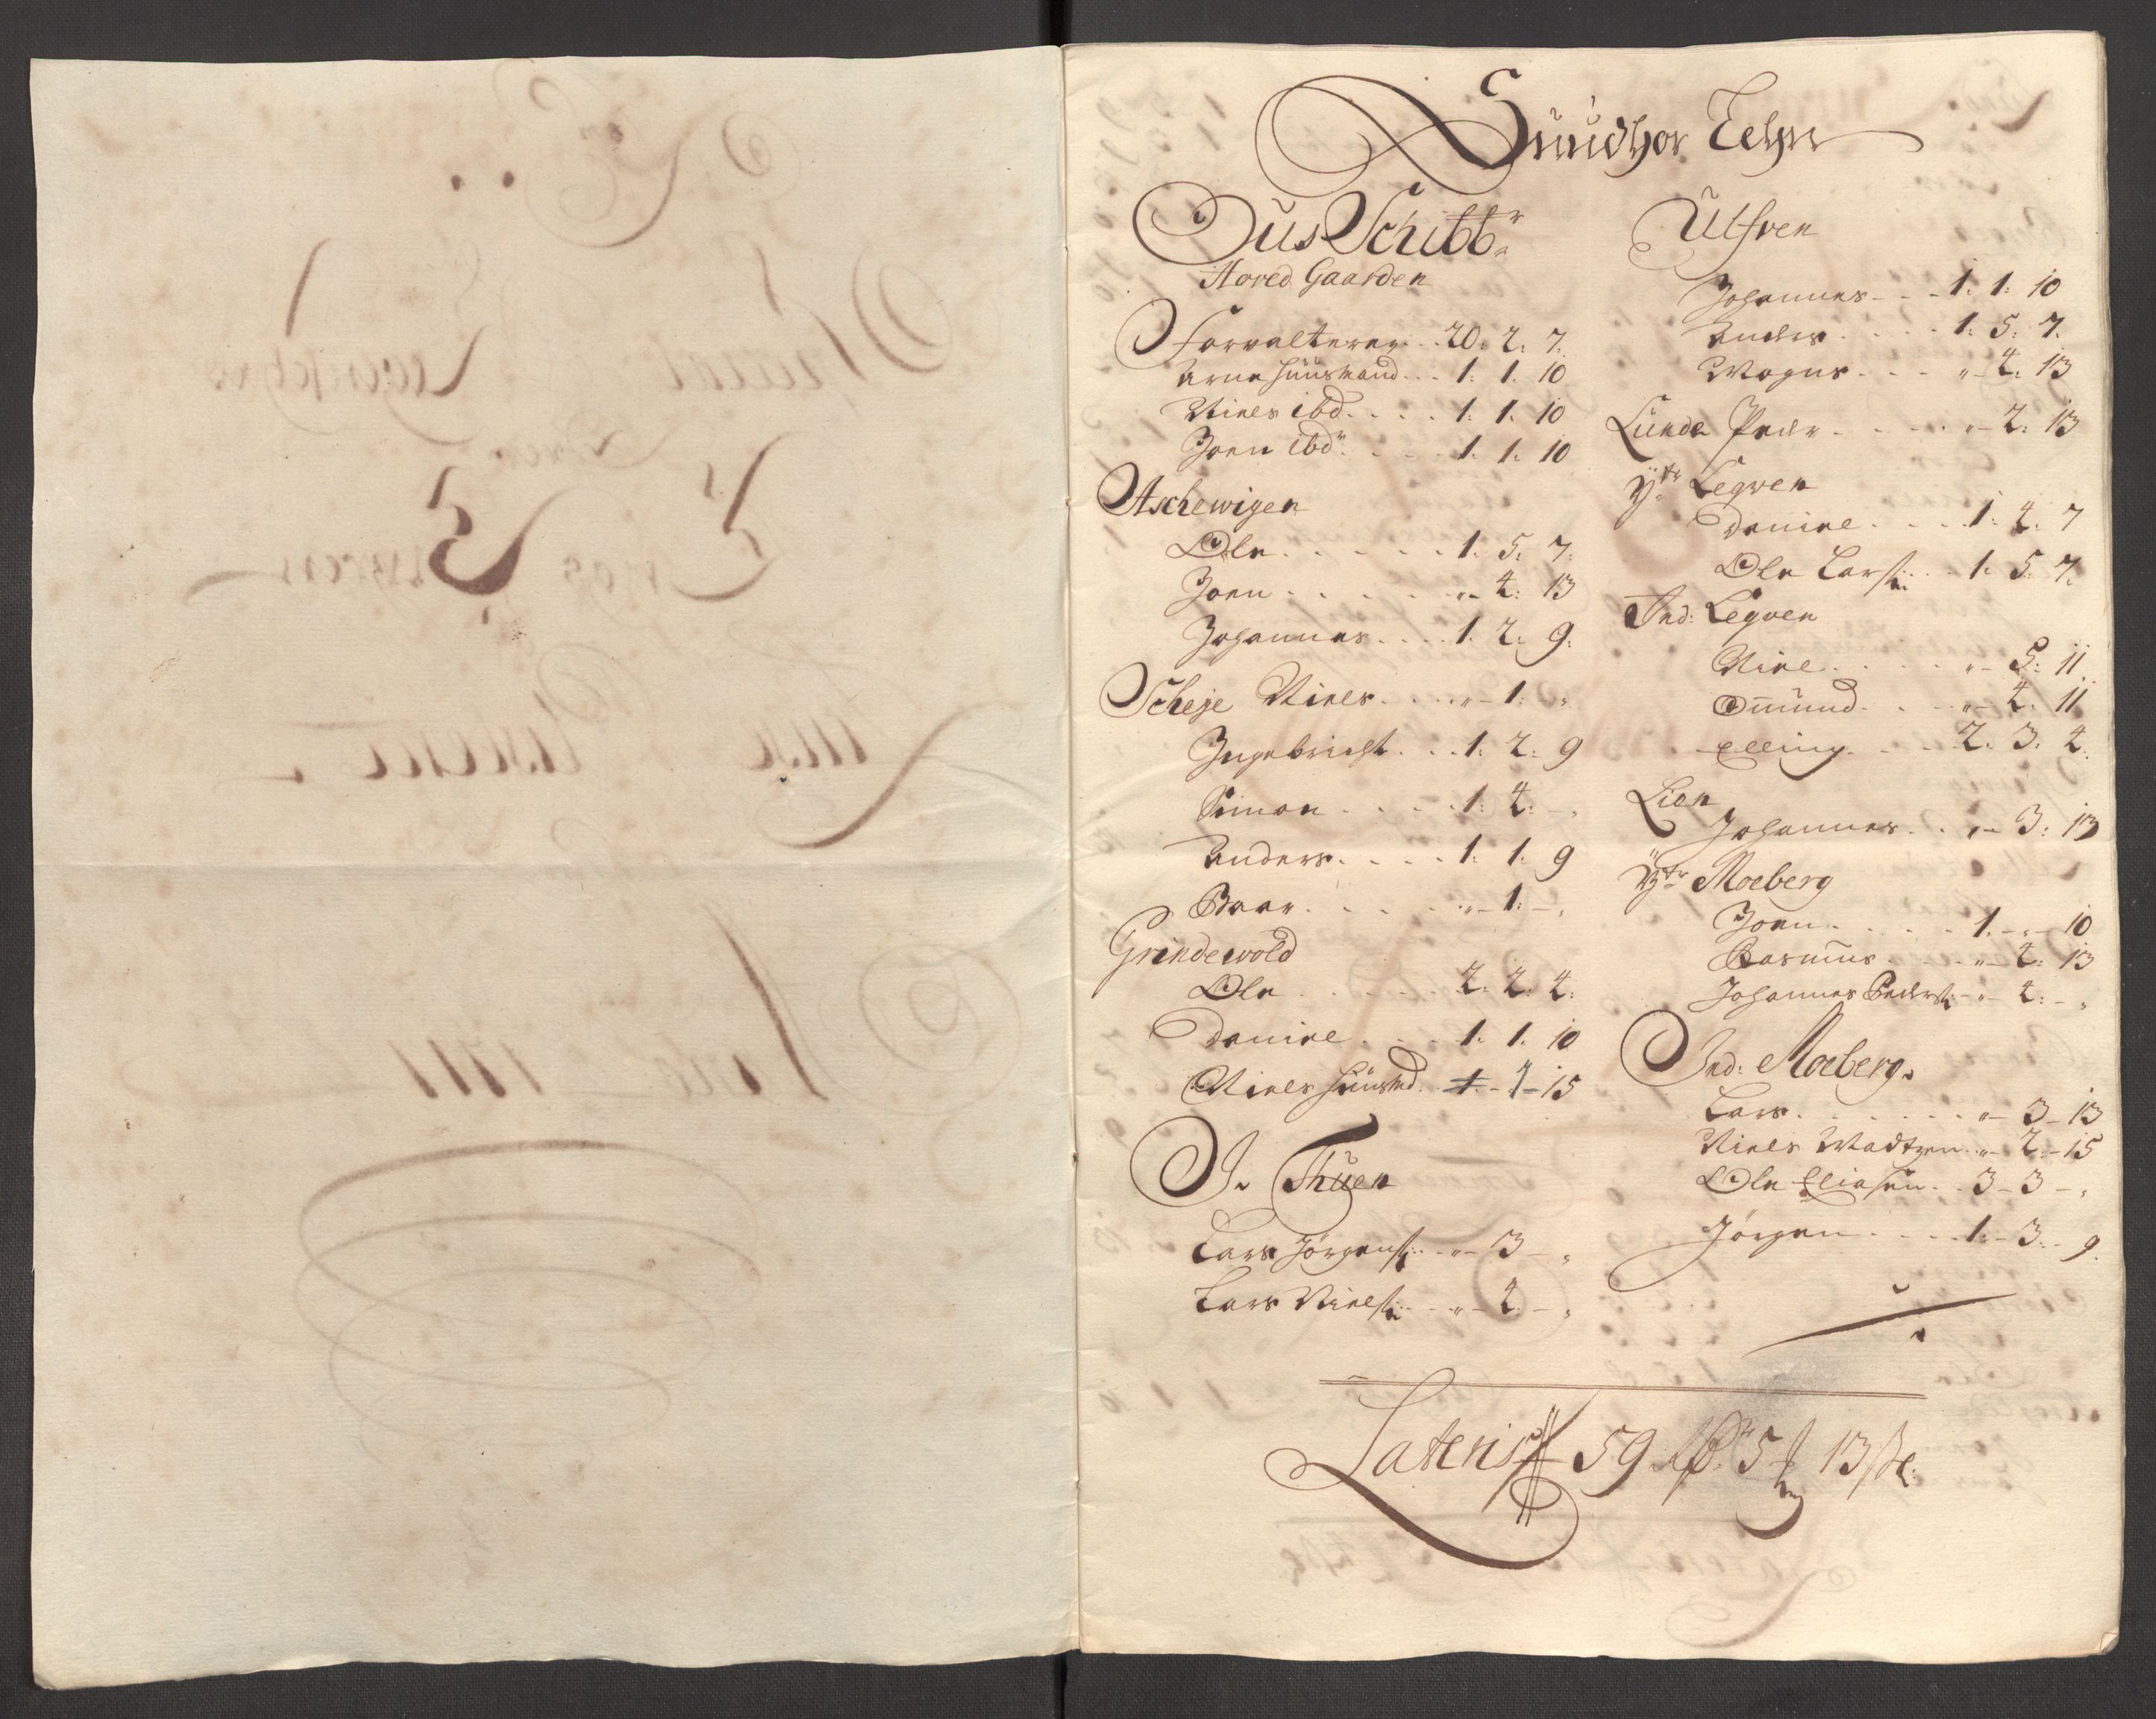 Sundhor Lehn
Ous Schibbr
Hoved Gaarden
Forvalteren . . 20. 2. 7.
Arne huusmand . . 1. 1. 10
Niels ibd. . . . 1. 1. 10
Joen ibdm . . . 1. 1. 10
Aschewigen
Ole . . . . . 1. 5. 7.
Joen . . . . . „ 4. 13
Johannes . . . . 1. 2. 9.
Scheje Niels . . . „ 1. „
Ingebricht . . . 1. 2. 9
Simon . . . . 1. 4. – „
Anders . . . . 1. 1. 9
Baar . . . . . „ – 1. – „
Grindewold
Ole . . . . . 2. 2. 4.
Daniel . . . . 1. 1. 10
Niels huusmd. . – 1 – 15
I. Thuen
Lars Jørgens: . . „ – 3 – „
Lars Niels: . . „ – 4 – „
Ulfven
Johannes . . . 1. 1. 10
Anders . . . . 1. 5. 7.
Mogns . . . „ – 4. 13
Lunde Peder . . . . „ – 2. 13
Ytr Legven
Daniel . . . . 1. 4. 7
Ole Lars: . . 1. 5. 7.
Ind: Legven
Niel . . . . „ – 5. 11
Omund . . . „ – 4. 11
Elling . . . . 2. 3. 4.
Lien
Johannes . . „ – 3. 13
Ytr Moeberg
Joen . . . . . 1. – „ – 10
Rasmus . . . . „ – 4. 13
Johannes Peders: – „ – 4. – „
Ind: Moeberg.
Lars . . . . . . „ – 3 – 13
Niels Madtzen . „ – 2 – 15
Ole Eliasen . . 3 – 3 – „
Jörgen . . . . 1. – 3. – 9
Lateris 59 5 13